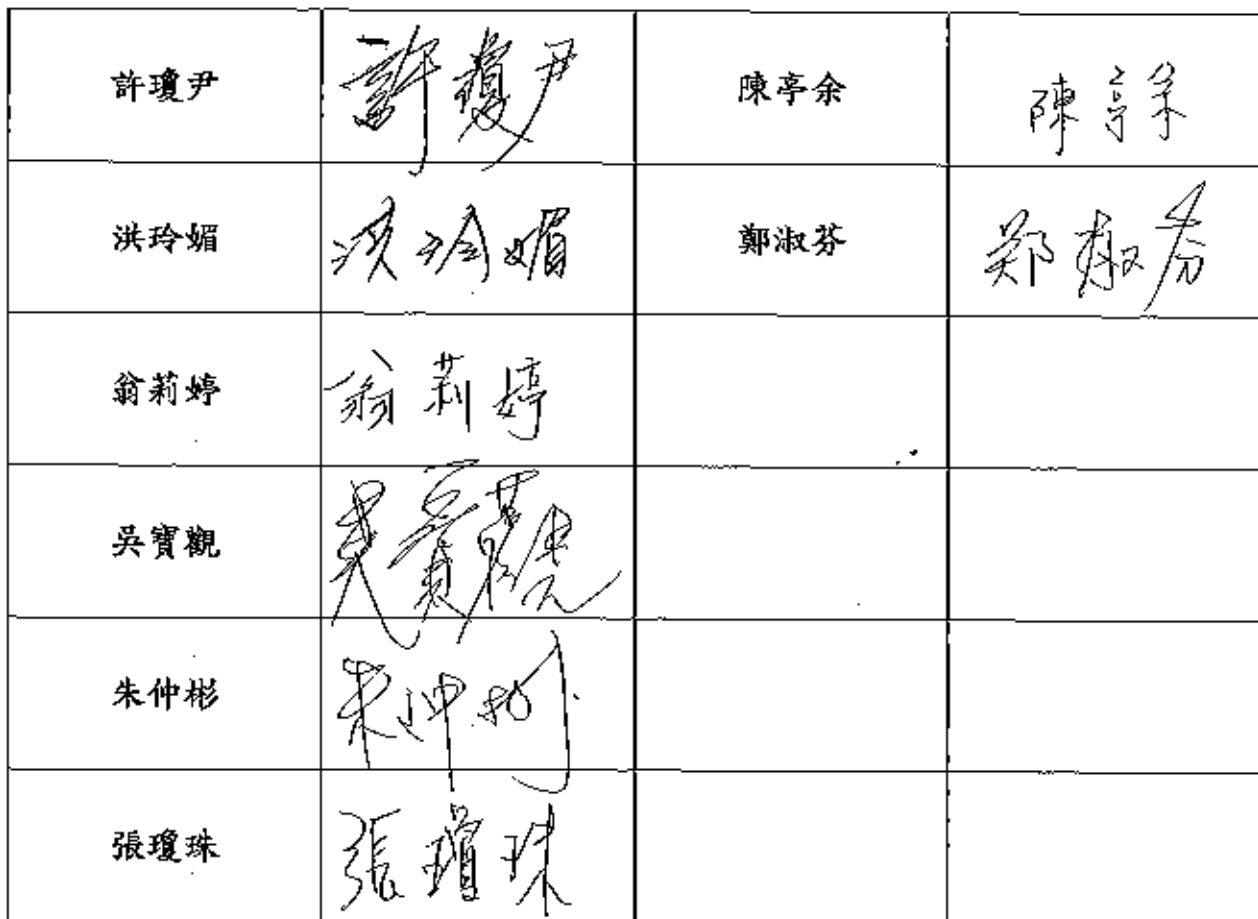 許瓊尹 許瓊尹 陳亭余 陳亭余
洪玲媚 洪玲媚 鄭淑芬 鄭淑芬
翁莉婷 翁莉婷
吳寶觀 吳寶觀
朱仲彬 朱仲彬
張瓊珠 張瓊珠